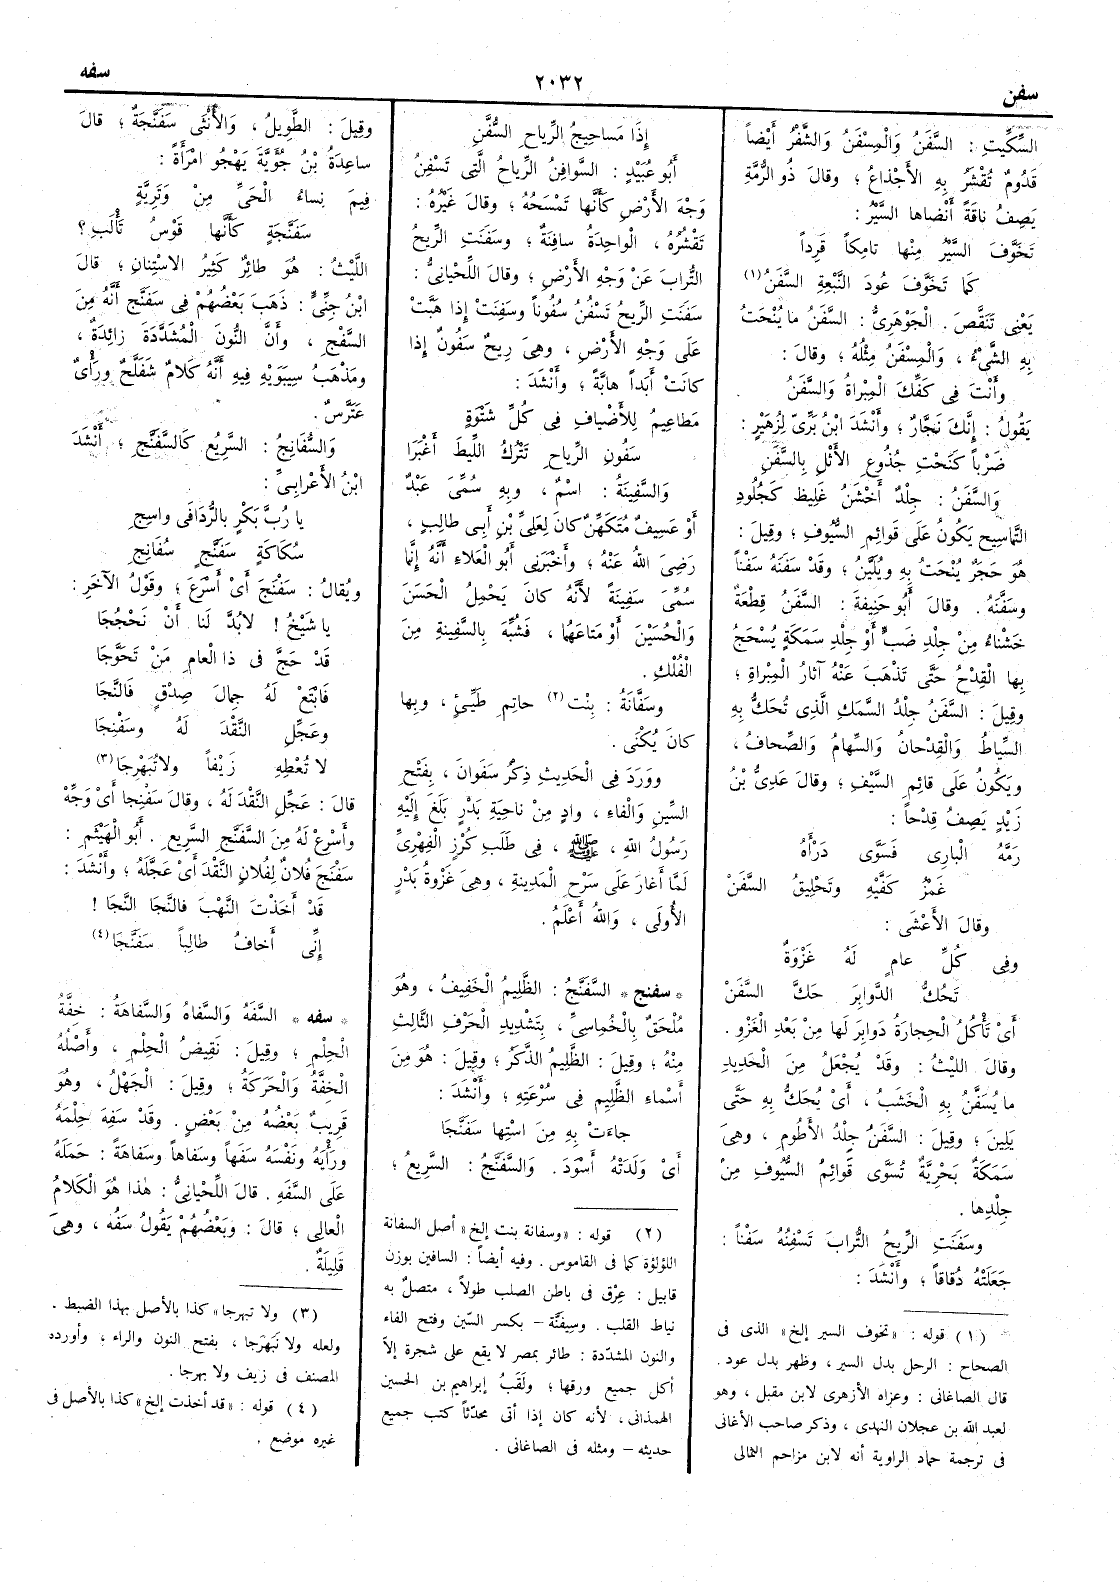 سفن
٢٠٣٢
سفه
السِّكِّيتِ : السَّفَنُ وَالْمِسْفَنُ وَالشَّفْرُ أَيْضاً
قَدُومٌ تُقْشَرُ بِهِ الأَجْذَاعُ ؛ وقالَ ذُو الرُّمَّةِ
يَصِفُ ناقَةً أَنْضاها السَّيْرُ :
تَخَوَّفَ السَّيْرُ مِنْها تامِكاً قَرِداً
كما تَخَوَّفَ عُودَ النَّبْعَةِ السَّفَنُ(١)
يَعْنِى تَنَقَّصَ . الْجَوْهَرِىُّ : السَّفَنُ ما يُنْحَتُ
بِهِ الشَّىْءُ ، وَالْمِسْفَنُ مِثْلُهُ ؛ وقالَ :
وأَنْتَ فِى كَفِّكَ الْمِبْراةُ وَالسَّفَنُ
يَقُولُ : إِنَّكَ نَجَّارٌ ؛ وأَنْشَدَ ابْنُ بَرِّىّ لِزُهَيْرٍ :
ضَرْباً كَنَحْتِ جُذُوعِ الأَثْلِ بِالسَّفَنِ
وَالسَّفَنُ : جِلْدٌ أَخْشَنُ غَلِيظ كَجُلُودِ
التَّماسِيحِ يَكُونُ عَلَى قَوائِمِ السُّيُوفِ ؛ وقِيلَ :
هُوَ حَجَرٌ يُنْحَتُ بِهِ ويُلَيَّنُ ؛ وقَدْ سَفَنَهُ سَفْناً
وسَفَّنَهُ . وقالَ أَبُو حَنِيفَةَ : السَّفَنُ قِطْعَةٌ
خَشْناءُ مِنْ جِلْدِ ضَبٍّ أَوْ جِلْدِ سَمَكَةٍ يُسْحَجُ
بِها الْقِدْحُ حَتَّى تَذْهَبَ عَنْهُ آثارُ الْمِبراةِ ؛
وقِيلَ : السَّفَنُ جِلْدُ السَّمَكِ الَّذِى تُحَكُّ بِهِ
السِّياطُ وَالْقِدْحانُ وَالسِّهامُ وَالصِّحافُ ،
ويَكُونُ عَلَى قائِمِ السَّيْفِ ؛ وقالَ عَدِىُّ بْنُ
زَيْدٍ يَصِفُ قِدْحاً :
رَمَّهُ الْبارِى فَسَوَّى دَرْأَهُ
غَمْزُ كَفَّيْهِ وتَحْلِيقُ السَّفَنْ
وقالَ الأَعْشَى :
وفِى كُلِّ عامٍ لَهُ غَزْوَةٌ
تَحُكُّ الدَّوابِرَ حَكَّ السَّفَنْ
أَىْ تَأْكُلُ الْحِجارَةُ دَوابِرَ لَها مِنْ بَعْدِ الْغَزْوِ .
وقالَ اللَّيْثُ : وقَدْ يُجْعَلُ مِنَ الْحَدِيدِ
ما يُسَفَّنُ بِهِ الْخَشَبُ ، أَىْ يُحَكُّ بِهِ حَتَّى
يَلِينَ ؛ وقِيلَ : السَّفَنُ جِلْدُ الأَطُومِ ، وهِىَ
سَمَكَةٌ بَحْرِيَّةٌ تُسَوَّى قَوائِمُ السُّيُوفِ مِنْ
جِلْدِها .
وسَفَنَتِ الرِّيحُ التُّرابَ تَسْفِنُهُ سَفْناً :
جَعَلَتْهُ دُقاقاً ؛ وأَنْشَدَ :
(١) قوله : «تخوف السير إلخ» الذى فى
الصحاح : الرحل بدل السير ، وظهر بدل عود .
قال الصاغانى : وعزاه الأزهرى لابن مقبل ، وهو
لعبد الله بن عجلان النهدى ، وذكر صاحب الأغانى
فى ترجمة حماد الراوية أنه لابن مزاحم الثمالى
إِذَا مَساحِيجُ الرِّياحِ السُّفَّنِ
أَبُو عُبَيْدٍ : السَّوافِنُ الرِّياحُ الَّتِى تَسْفِنُ
وَجْهَ الأَرْضِ كَأَنَّها تَمْسَحُهُ ؛ وقالَ غَيْرُهُ :
تَقْشُرُهُ ، الْواحِدَةُ سافِنَةٌ ؛ وسَفَنَتِ الرِّيحُ
التُّرابَ عَنْ وَجْهِ الأَرْضِ ؛ وقالَ اللِّحْيانِىُّ :
سَفَنَتِ الرِّيحُ تَسْفُنُ سُفُوناً وسَفِنَتْ إِذا هَبَّتْ
عَلَى وَجْهِ الأَرْضِ ، وهِىَ رِيحٌ سَفُونٌ إِذا
كانَتْ أَبَداً هابَّةً ؛ وأَنْشَدَ :
مَطاعِيمُ لِلأَضْيافِ فِى كُلِّ شَتْوَةٍ
سَفُونِ الرِّياحِ تَتْرُكُ اللِّيطَ أَغْبَرَا
وَالسَّفِينَةُ : اسْمٌ ، وبِهِ سُمِّىَ عَبْدٌ
أَوْ عَسِيفٌ مُتَكَهِّنٌ كانَ لِعَلِىِّ بْنِ أَبِى طالِبٍ ،
رَضِىَ اللهُ عَنْهُ ؛ وأَخْبَرَنِى أَبُو الْعَلاءِ أَنَّهُ إِنَّما
سُمِّىَ سَفِينَةً لأَنَّهُ كانَ يَحْمِلُ الْحَسَنَ
وَالْحُسَيْنَ أَوْ مَتاعَهُما ، فَشُبِّهَ بِالسَّفِينَةِ مِنَ
الْفُلْكِ .
وسَفَّانَةُ : بِنْت(٢) حاتِمِ طَيِّئٍ ، وبِها
كانَ يُكْنَى .
ووَرَدَ فِى الْحَدِيثِ ذِكْرُ سَفَوانَ ، بِفَتْحِ
السِّينِ وَالْفاءِ ، وادٍ مِنْ ناحِيَةِ بَدْرٍ بَلَغَ إِلَيْهِ
رَسُولُ اللهِ ، ﷺ ، فِى طَلَبِ كُرْزٍ الْفِهْرِىِّ
لَمَّا أَغارَ عَلَى سَرْحِ الْمَدِينَةِ ، وهِىَ غَزْوَةُ بَدْرٍ
الأُولَى ، وَاللهُ أَعْلَمُ .
* سفنج * السَّفَنَّجُ : الظَّلِيمُ الْخَفِيفُ ، وهُوَ
مُلْحَقٌ بِالْخُماسِىِّ ، بِتَشْدِيدِ الْحَرْفِ الثَّالِثِ
مِنْهُ ؛ وقِيلَ : الظَّلِيمُ الذَّكَرُ ؛ وقِيلَ : هُوَ مِنَ
أَسْماءِ الظَّلِيمِ فِى سُرْعَتِهِ ؛ وأَنْشَدَ :
جاءَتْ بِهِ مِنَ اسْتِها سَفَنَّجَا
أَىْ وَلَدَتْهُ أَسْوَدَ . وَالسَّفَنَّجُ : السَّرِيعُ ؛
(٢) قوله : «وسفانة بنت إلخ» أصل السفانة
اللؤلؤة كما فى القاموس . وفيه أيضاً : السافين بوزن
قابيل : عِرْق فى باطن الصلب طولاً ، متصلٌ به
نياط القلب . وسِيفَنَّة – بكسر السّين وفتح الفاء
والنون المشدّدة : طائر بمصر لا يقع على شجرة إلاّ
أكل جميع ورقها ؛ ولَقَبُ إبراهيم بن الحسين
الهمذانى ، لأنه كان إذا أتى محدّثاً كتب جميع
حديثه – ومثله فى الصاغانى .
وقِيلَ : الطَّوِيلُ ، وَالأُنْثَى سَفَنَّجَةٌ ؛ قالَ
ساعِدَةُ بْنُ جُؤَيَّةَ يَهْجُو امْرَأَةً :
فِيمَ نِساءُ الْحَىِّ مِنْ وَتَرِيَّةٍ
سَفَنَّجَةٍ كَأَنَّها قَوْسُ تَأْلَبِ ؟
اللَّيْثُ : هُوَ طائِرٌ كَثِيرُ الاسْتِنانِ ؛ قالَ
ابْنُ جِنِّىٍّ : ذَهَبَ بَعْضُهُمْ فِى سَفَنَّجٍ أَنَّهُ مِنَ
السَّفْجِ ، وأَنَّ النُّونَ الْمُشَدَّدَةَ زائِدَةٌ ،
ومَذْهَبُ سِيبَوَيْهِ فِيهِ أَنَّهُ كَلامٌ شَفَلَّحٌ ورأْىٌ
عَتَرَّسٌ .
وَالسُّفانِجُ : السَّرِيعُ كَالسَّفَنَّجِ ؛ أَنْشَدَ
ابْنُ الأَعْرابِىِّ :
يا رُبَّ بَكْرٍ بِالرُّدافَى واسِجِ
سُكَاكَةٍ سَفَنَّجٍ سُفانِجِ
ويُقالُ : سَفْنَجَ أَىْ أَسْرَعَ ؛ وقَوْلُ الآخَرِ :
يا شَيْخُ ! لابُدَّ لَنا أَنْ نَحْجُجَا
قَدْ حَجَّ فى ذا الْعامِ مَنْ تَحَوَّجَا
فَابْتَعْ لَهُ جِمالَ صِدْقٍ فَالنَّجَا
وعَجِّلِ النَّقْدَ لَهُ وسَفْنِجَا
لا تُعْطِهِ زَيْفاً ولاتُبَهْرِجَا(٣)
قالَ : عَجِّلِ النَّقْدَ لَهُ ، وقالَ سَفْنِجا أَىْ وَجِّهْ
وأَسْرِعْ لَهُ مِنَ السَّفَنَّجِ السَّرِيعِ . أَبُو الْهَيْثَمِ :
سَفْنَجَ فُلانٌ لِفُلانٍ النَّقْدَ أَىْ عَجَّلَهُ ؛ وأَنْشَدَ :
قَدْ أَخَذْتَ النَّهْبَ فَالنَّجَا النَّجَا !
إِنِّى أَخافُ طالِباً سَفَنَّجَا(٤)
* سفه * السَّفَهُ وَالسَّفاهُ وَالسَّفاهَةُ : خِفَّةُ
الْحِلْمِ ؛ وقِيلَ : نَقِيضُ الْحِلْمِ ، وأَصْلُهُ
الْخِفَّةُ وَالْحَرَكَةُ ؛ وقِيلَ : الْجَهْلُ ، وهُوَ
قَرِيبٌ بَعْضُهُ مِنْ بَعْضٍ . وقَدْ سَفِهَ حِلْمَهُ
ورَأْيَهُ ونَفْسَهُ سَفَهاً وسَفاهاً وسَفاهَةً : حَمَلَهُ
عَلَى السَّفَهِ . قالَ اللِّحْيانِىُّ : هٰذا هُوَ الْكَلامُ
الْعالِى ؛ قالَ : وَبَعْضُهُمْ يَقُولُ سَفُهَ ، وهِىَ
قَلِيلَةٌ .
(٣) ولا تبهرجا» كذا بالأصل بهذا الضبط .
ولعله ولا نَبَهْرَجا ، بفتح النون والراء ، وأورده
المصنف فى زيف ولا بهرجا .
(٤) قوله : «قد أخذت إلخ» كذا بالأصل فى
غيره موضع .